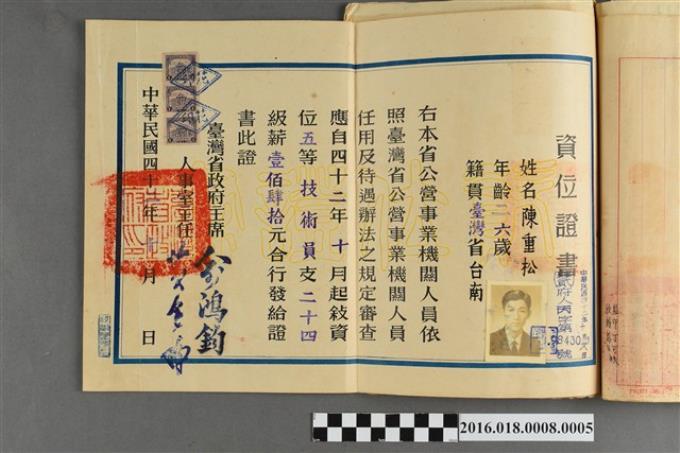 資位證書
姓名陳重松
年齡二六歲
籍貫臺灣省台南
右本省公營事業機關人員依
照臺灣省公營事業機關人員
任用及待遇辦法之規定審查
應自四十二年十月起敍資
位五等技術員支二十四
級薪壹佰肆拾元合行發給證
書此證
臺灣省政府主席
俞鴻鈞
人事室主任
中華民國四十二年 月 日
2016.018.0008.0005